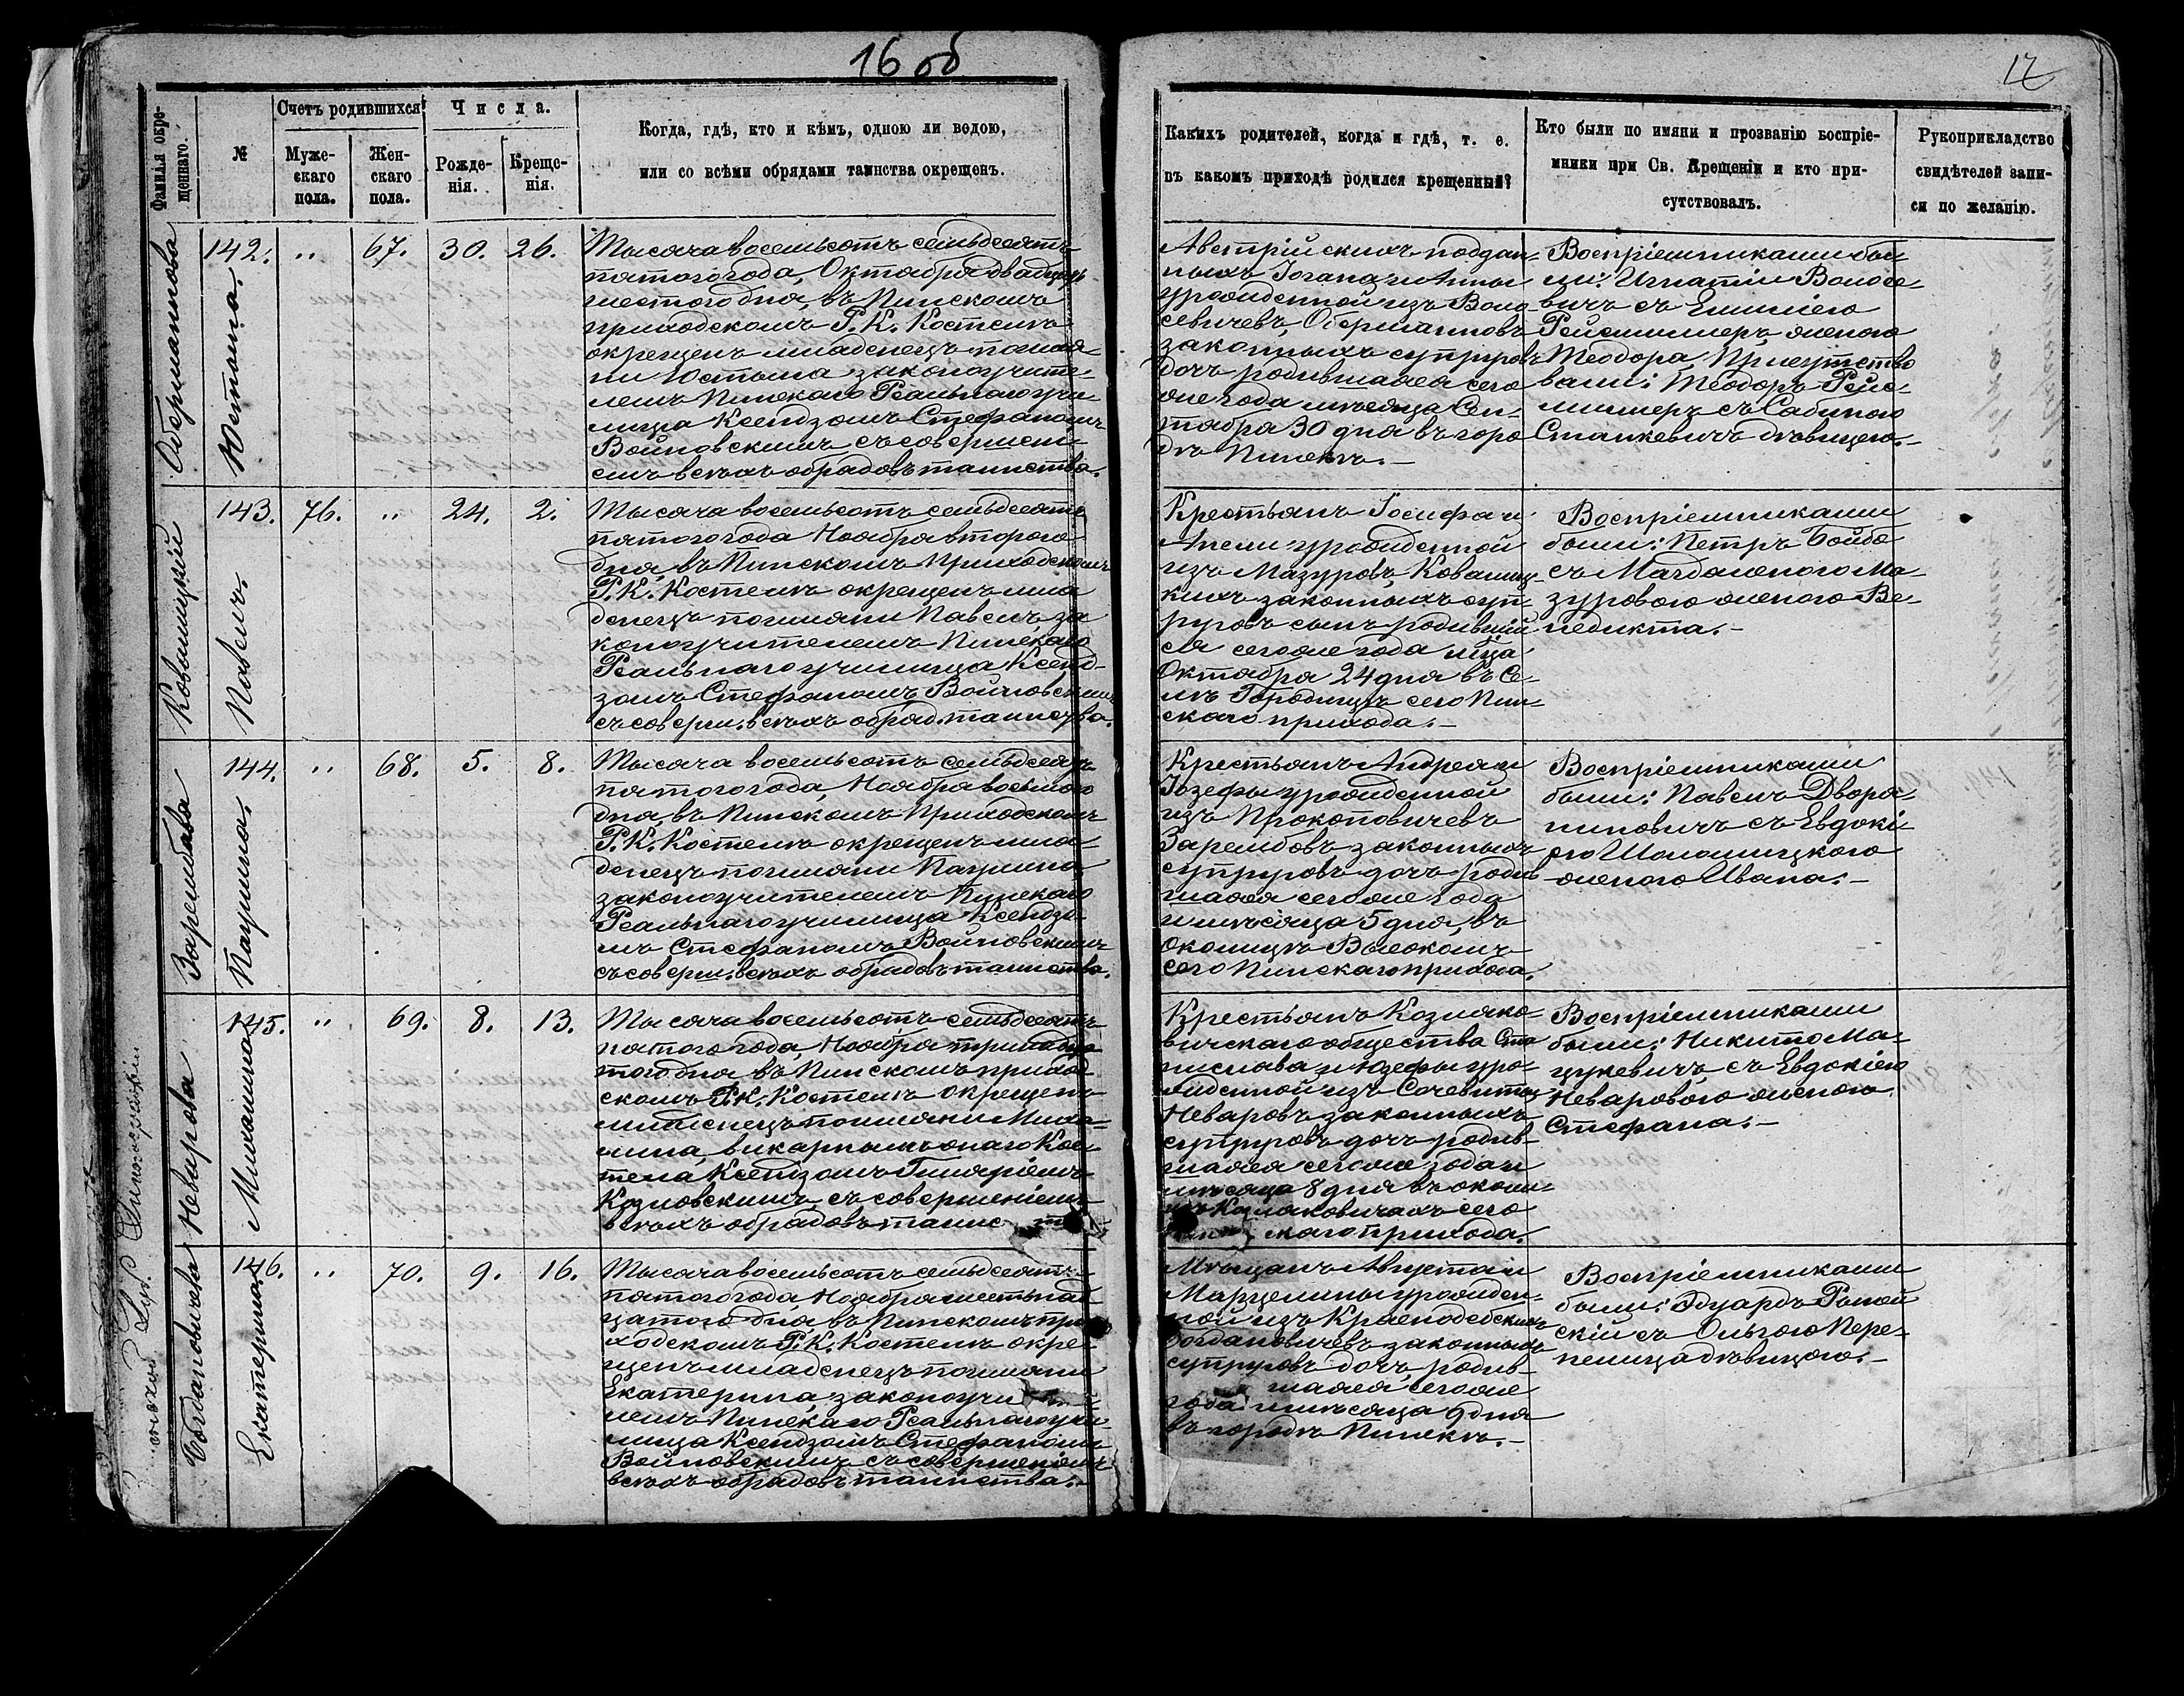 16 об
17
Фамилія окре-
щеннаго.
№
Счетъ родившихся
Муже-
скаго
пола.
Жен-
скаго
пола.
Числа.
Рожде-
нія.
Креще-
нія.
Когда, гдѣ, кто и кѣмъ, одною ли водою,
или со всѣми обрядами таинства окрещенъ.
Какихъ родителей, когда и гдѣ, т. е.
въ какомъ приходѣ родился крещенный?
Кто были по имяни и прозванію воспріе-
мники при Св. Крещеніи и кто при-
сутствовалъ.
Рукоприкладство
свидѣтелей запи-
си по желанію.
Оберманнова
Юстына.
142. " 67. 30. 26.
Тысяча восемьсотъ семьдесятъ
пятого года, Октября двадцать
шестого дня, въ Пинскомъ
приходскомъ Р. К. Костелѣ
окрещенъ младенецъ по имя-
ни Юстына законоучите-
лемъ Пинскаго Реальнаго учи
лища Ксендзомъ Стефаномъ
Войновскимъ съ совершені-
емъ всѣхъ обрядовъ таинства.
Австрійскихъ поддан-
ныхъ Іогана и Анны
урожденной изъ Воло-
севичевъ, Обермановъ
законныхъ супруговъ
дочь родившаяся сего
же года мѣсяца Сен-
тября 30 дня въ горо-
дѣ Пинскѣ.-
Воспріемниками бы-
ли: Игнатій Волосе-
вичъ съ Емиліею
Рейсмиллеръ, женою
Теодора, Присутство
вали: Теодоръ Рейс-
миллеръ съ Сабиною
Станкевичъ дѣвицею.-
Ковалицкій
Павелъ.
143. 76. " 24. 2.
Тысяча восемьсотъ семьдесятъ
пятого года Ноября второго
дня, въ Пинскомъ Приходскомъ
Р. К. Костелѣ окрещенъ мла
денецъ по имяни Павелъ, за
коноучителемъ Пинскаго
Реальнаго училища Ксенд-
зомъ Стефаномъ Войновскимъ
съ соверш. всѣхъ обряд. таинства.
Крестьянъ Іосифа и
Анели урожденной
изъ Мазуровъ, Ковалиц-
кихъ законныхъ суп-
руговъ сынъ родивший
ся сего же года м҃ца
Октября 24 дня въ Се-
лѣ Городищѣ сего Пин-
скаго прихода.-
Воспріемниками
были: Петръ Бойбо
съ Магдаленою Ма-
зуровою женою Ве-
недикта.-
Зарембова
Паулина.
144. " 68. 5. 8.
Тысяча восемьсотъ семьдесятъ
пятого года, Ноября восьмого
дня, въ Пинскомъ Приходскомъ
Р. К. Костелѣ окрещенъ мла-
денецъ по имяни Паулина,
законоучителемъ Пинскаго
Реальнаго училища Ксендзо-
мъ Стефаномъ Войновскимъ
съ соверш. всѣхъ обрядовъ таинства.
Крестьянъ Андрея и
Іозефы урожденной
изъ Прокоповичевъ
Зарембовъ законныхъ
супруговъ дочь родив
шаяся сего же года
и мѣсяца 5 дня, въ
околицѣ Высокомъ
сего Пинскаго прихода.
Воспріемниками
были: Павелъ Дворя-
ниновичъ съ Евдокі-
ею Шоломицкою
женою Ивана.-
Неварова
Михалина.
145. " 69. 8. 13.
Тысяча восемьсотъ семьдесятъ
пятого года, Ноября тринадца
того дня въ Пинскомъ приход-
скомъ Р. К. Костелѣ окрещенъ
младенецъ по имяни Миха-
лина, викарнымъ онаго Кос-
тела Ксендзомъ Гиляріемъ
Козловскимъ съ совершеніемъ
всѣхъ обрядовъ таинс
Крестьянъ Козляко-
вичскаго общества Ста
нислава и Юзефы уро-
жденной изъ
Неваровъ законныхъ
супруговъ дочь родив-
шаяся сего же года и
мѣсяца 8 дня въ околи-
цѣ Козляковичахъ сего
скаго прихода.
Воспріемниками
были: Никита Ма-
цукевичъ, съ Евдокіею
Неваровою женою
Стефана.-
Богдановичева
Екатерина.
146. " 70. 9. 16.
Тысяча восемьсотъ семьдесятъ
пятого года, Ноября шестнад
цатого дня въ Пинскомъ при
ходскомъ Р. К. Костелѣ окре-
щенъ младенецъ по имяни
Екатерина, законоучи
лемъ Пинскаго Реальнаго учи
лища Ксендзомъ Стефаномъ
Войновскимъ съ совершеніемъ
всѣхъ обрядовъ таинства.-
Мѣщанъ Августа и
Марцелины урожден-
ной изъ Краснодебскихъ
Богдановичевъ законныхъ
супруговъ дочь, родив-
шаяся сего же
года и мѣсяца 9 дня
въ городѣ Пинскѣ.-
Воспріемниками
были: Эдуардъ
скій съ Ольгою Пере-
пелица дѣвицою.-